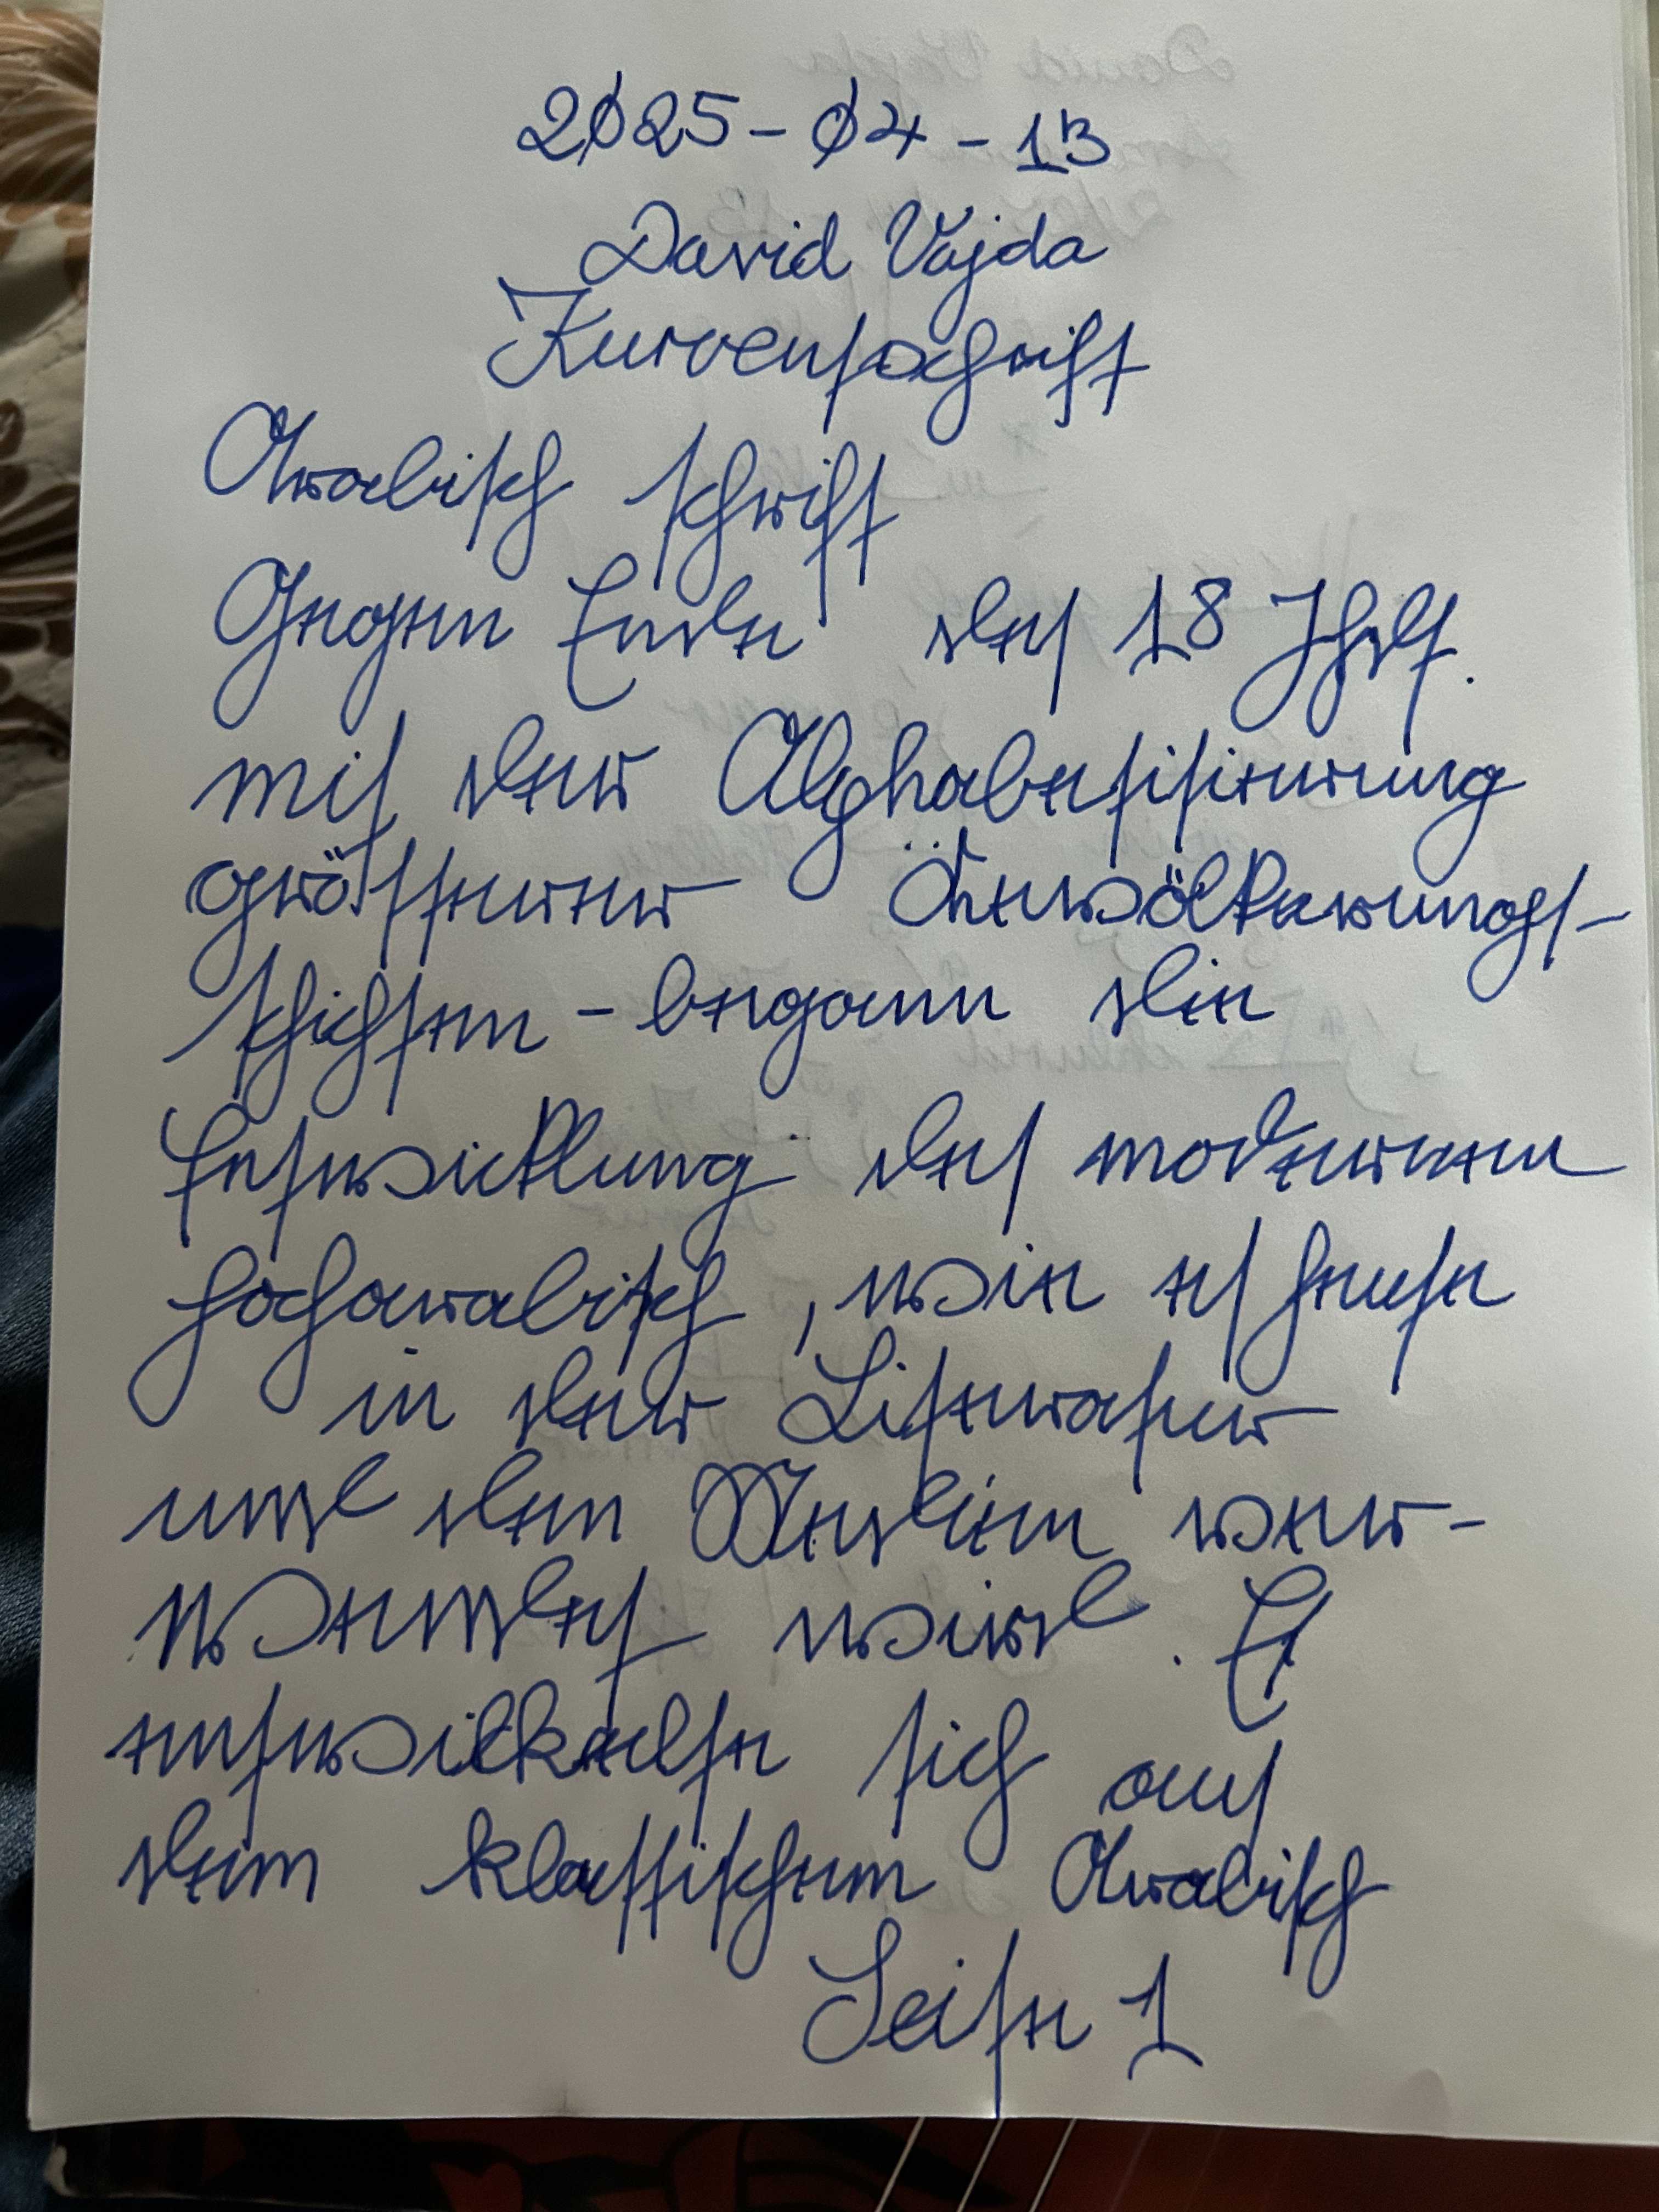 2025-04-13
David Vajda
Kurvenschrift
Arabisch Schrift
Gegen Ende des 18 Jhdt.
mit der Alphabetisierung
grösserer Bevölkerungs-
schichten - begann die
Entwicklung des modernen
Hocharabisch, wie es heute
in der Literatur
und den Medien ver-
wendet wird. Es
entwickelte sich aus
dem klassischen Arabisch
Seite 1